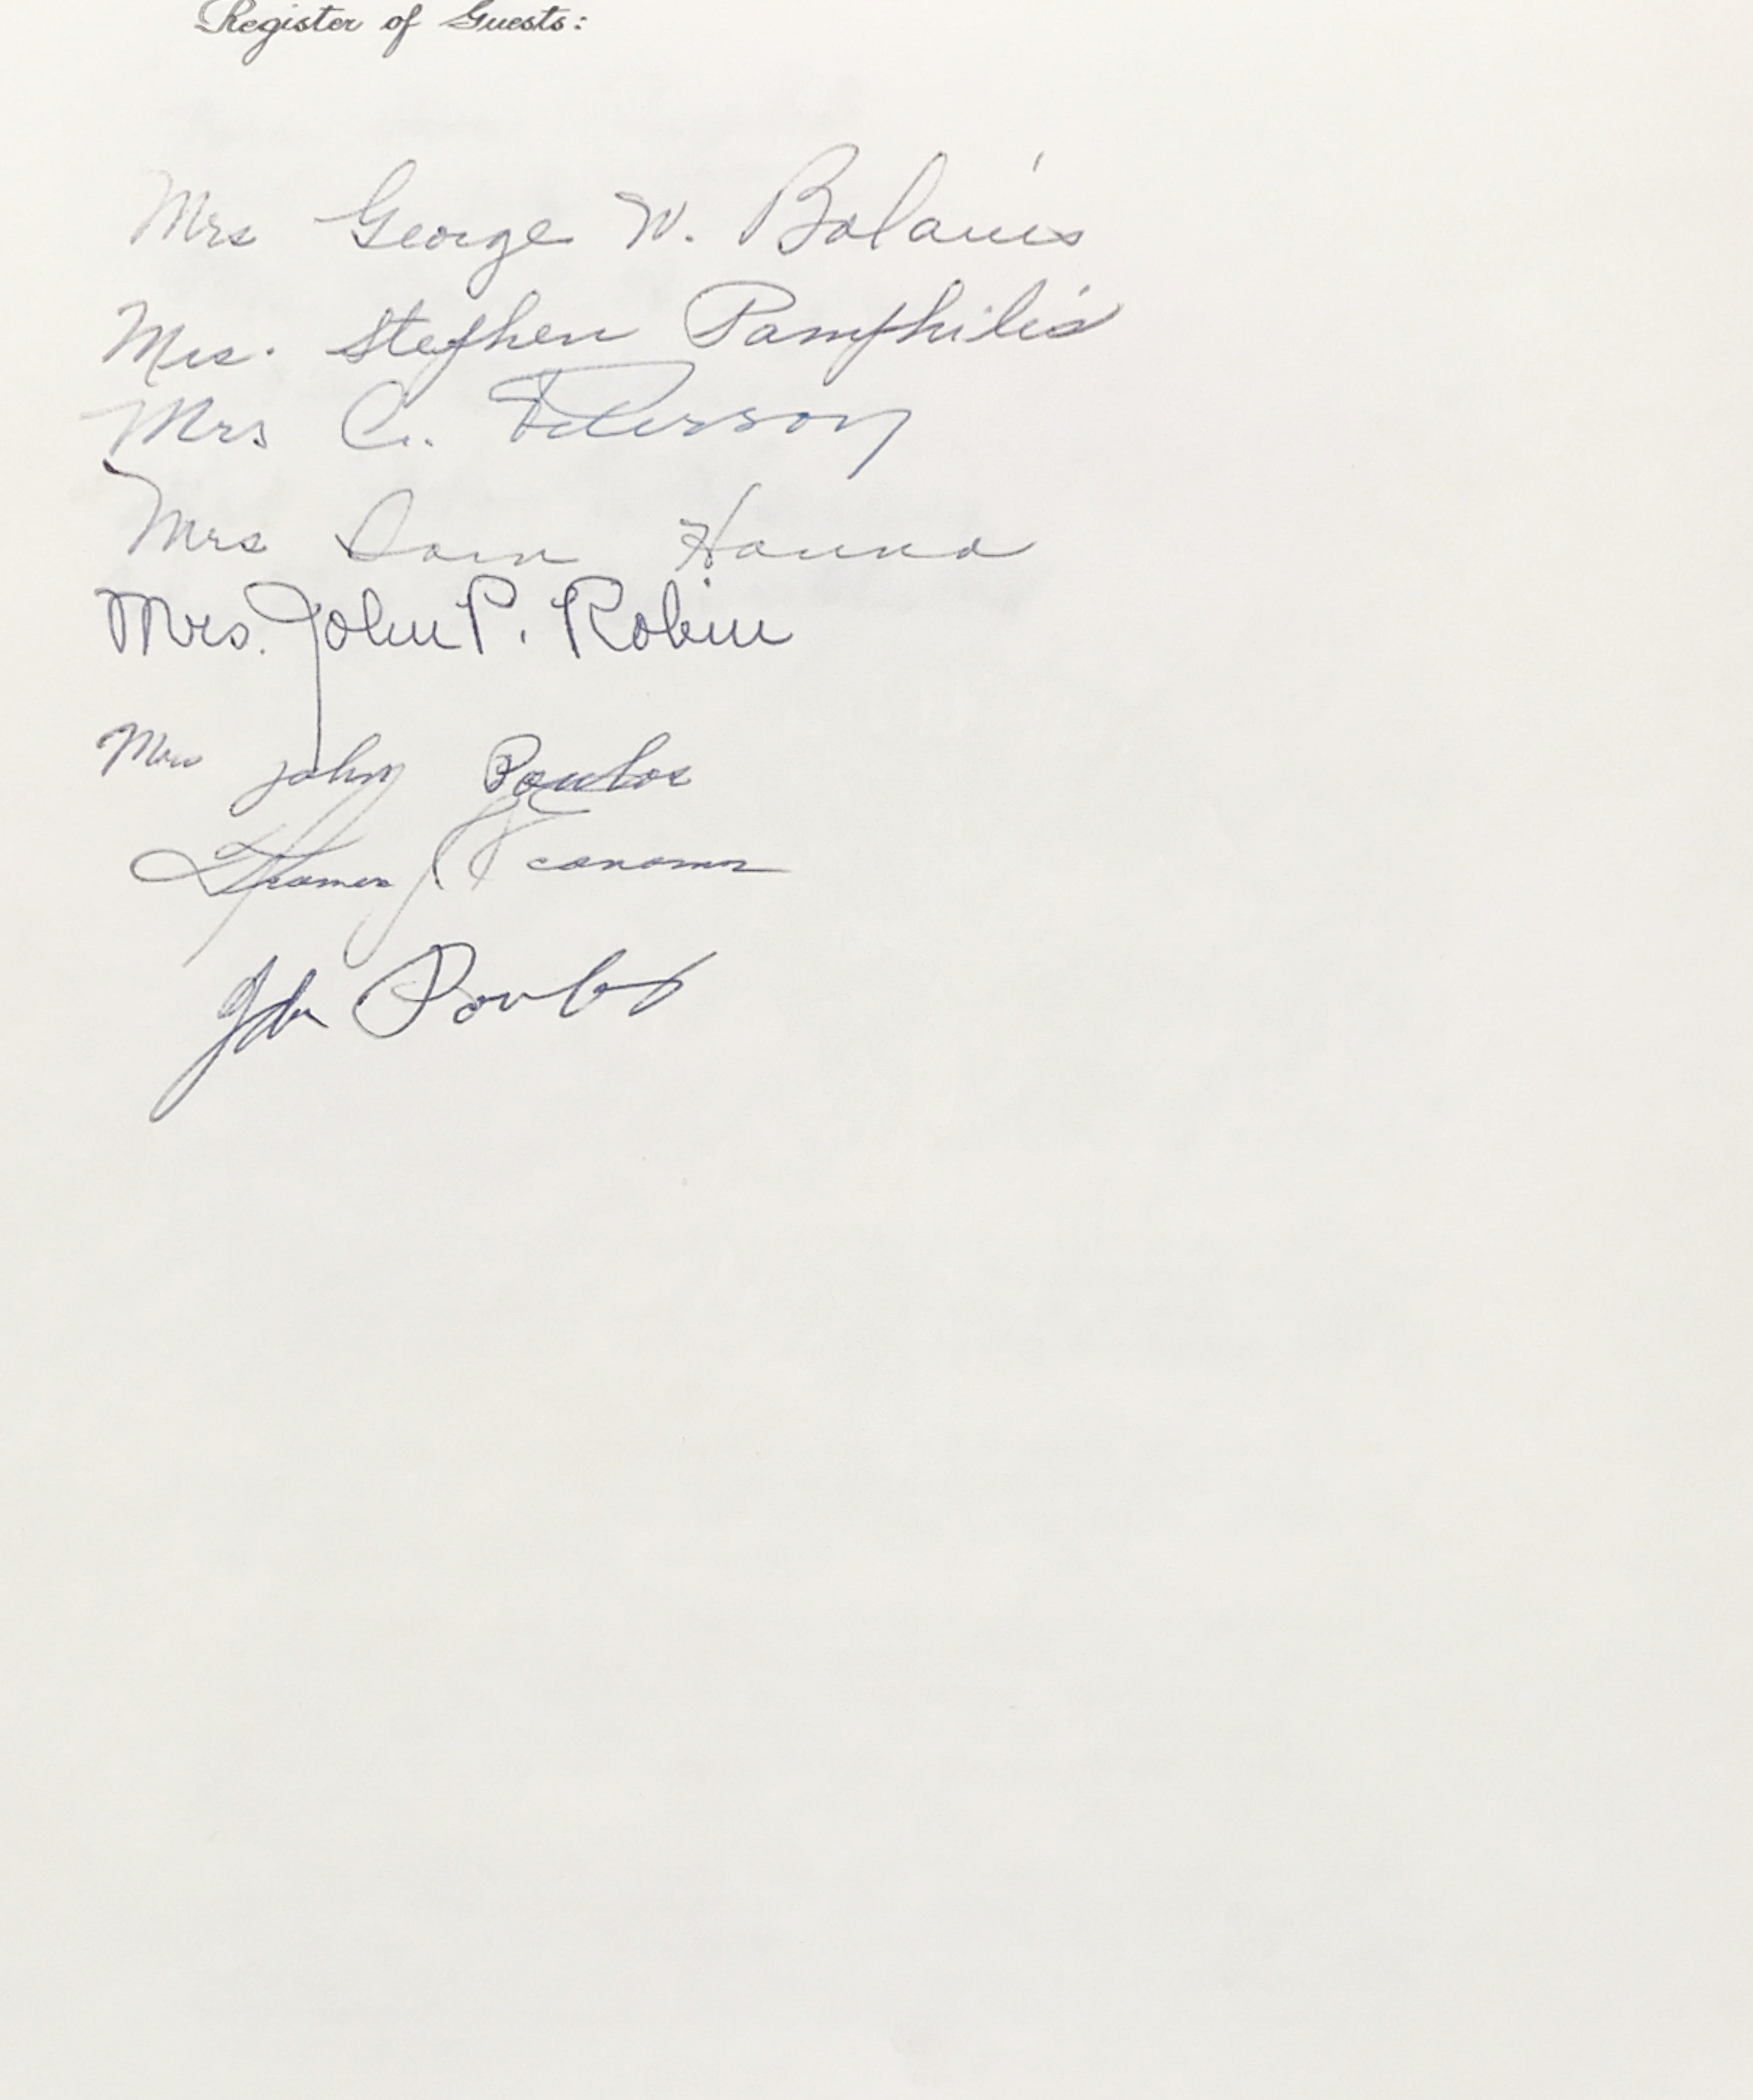 Register of Guests:
Mrs George W. Bolanis
Mrs. Stephen Pamphilis
Mrs C. Peterson
Mrs Sam Hanna
Mrs. John P. Robin
Mrs John Poulos
Thomas J. Economos
John Poulos